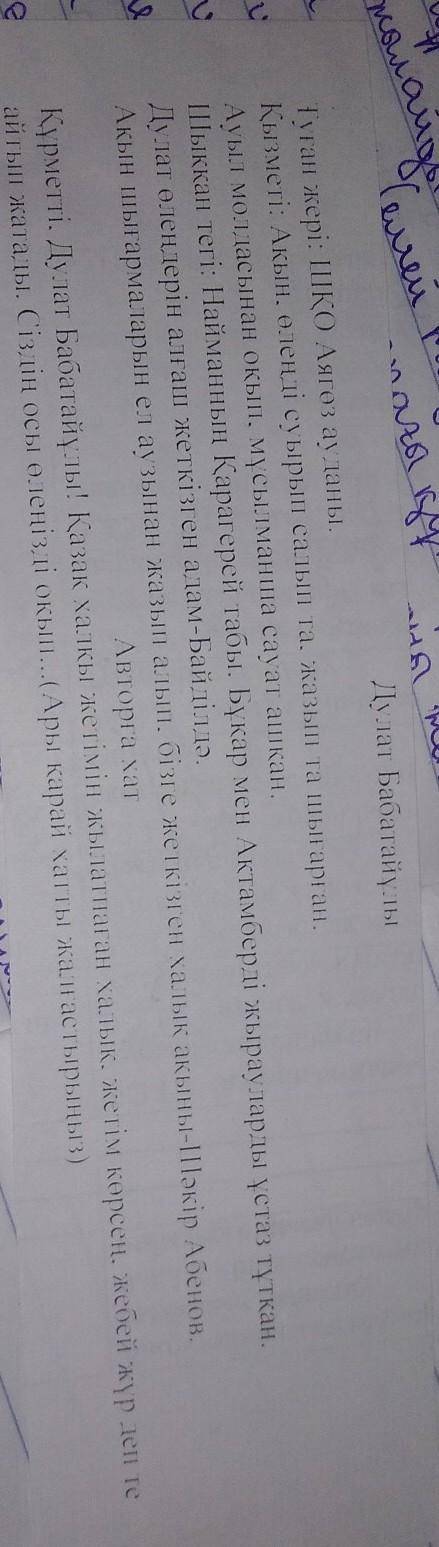 Дулат Бабатайұлы
Туған жері: ШҚО Аягөз ауданы.
Қызметі: Ақын. өлеңді суырып салып та. жазып та шығарған.
Ауыл молдасынан оқып. мұсылманша сауат ашқан.
Шыққан тегі: Найманның Қарагерей табы. Бұқар мен Ақтамберді жырауларды ұстаз тұтқан.
Дулат өлеңдерін алғаш жеткізген адам-Байділдә.
Ақын шығармаларын ел аузынан жазып алып. бізге жеткізген халық ақыны-Шәкір Абенов.
Авторға хат
Құрметті. Дулат Бабатайұлы! Қазақ халқы жетімін жылатпаған халық. жетім көрсең. жебей жүр деп те
айтып жатады. Сіздің осы өленізді оқып...(Ары қарай хатты жалғастырыңыз)